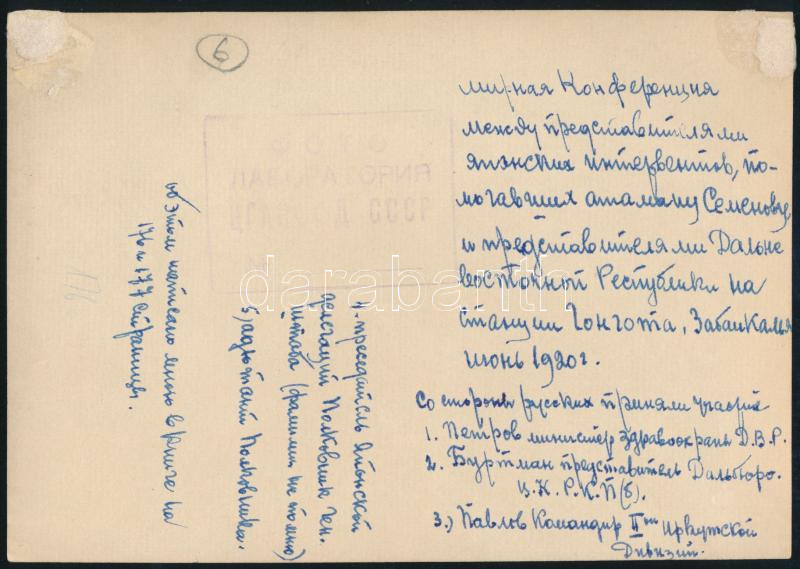 6
мирная Конференция
между представителями
японских интервентов, по-
могавших атаману Семенову
и представителями Дальне
восточной Республики на
станции Гонгота, Забайкалья
июнь 1920 г.
Со стороны русских приняли участие
1. Петров министер Здравоохраны Д.В.Р.
2. Буртман представитель Дальбюро.
Ц.К.Р.К.П(б).
3.) Павлов Командир II ой Иркутской
Дивизии.
4. председатель Японской
делегации Полковник ген.
штаба (фамилии не помню)
5) адютант Полковника.
об этом написано мною в книге на
176 и 177 страницы.
176
darabanth.com